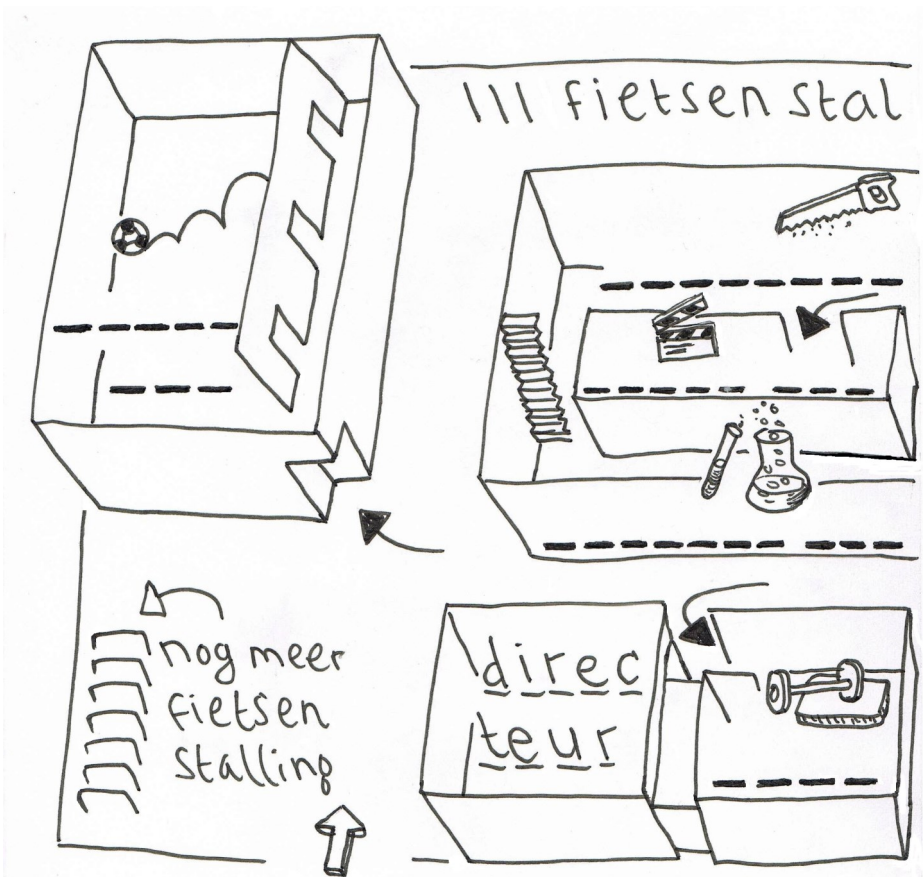 fietsenstal
nog meer
fietsen
stalling
direc
teur